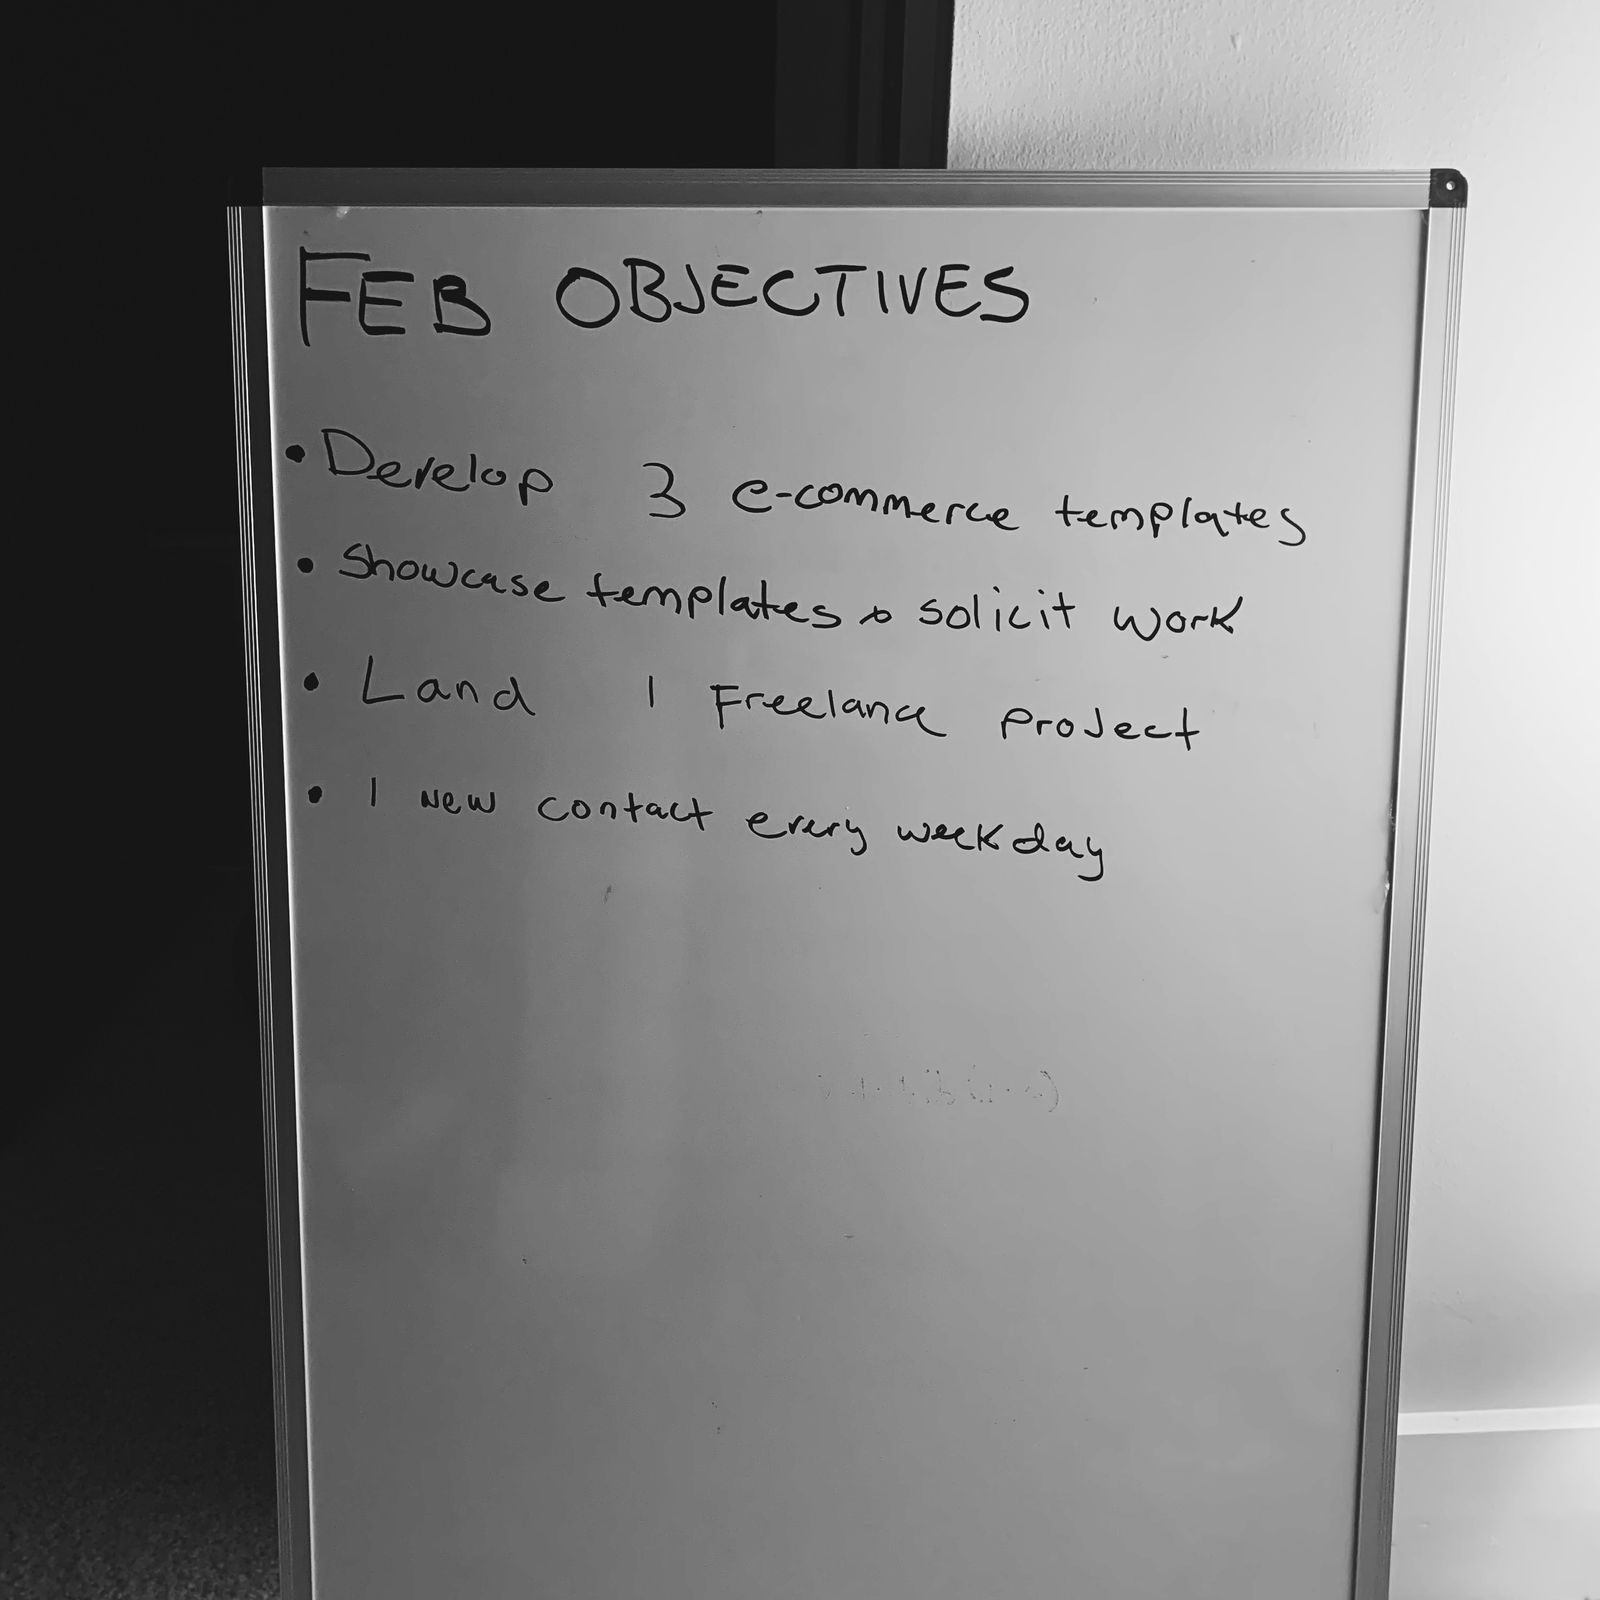 FEB OBJECTIVES
• Develop 3 e-commerce templates
• Showcase templates & solicit work
• Land 1 Freelance project
• 1 new contact every weekday